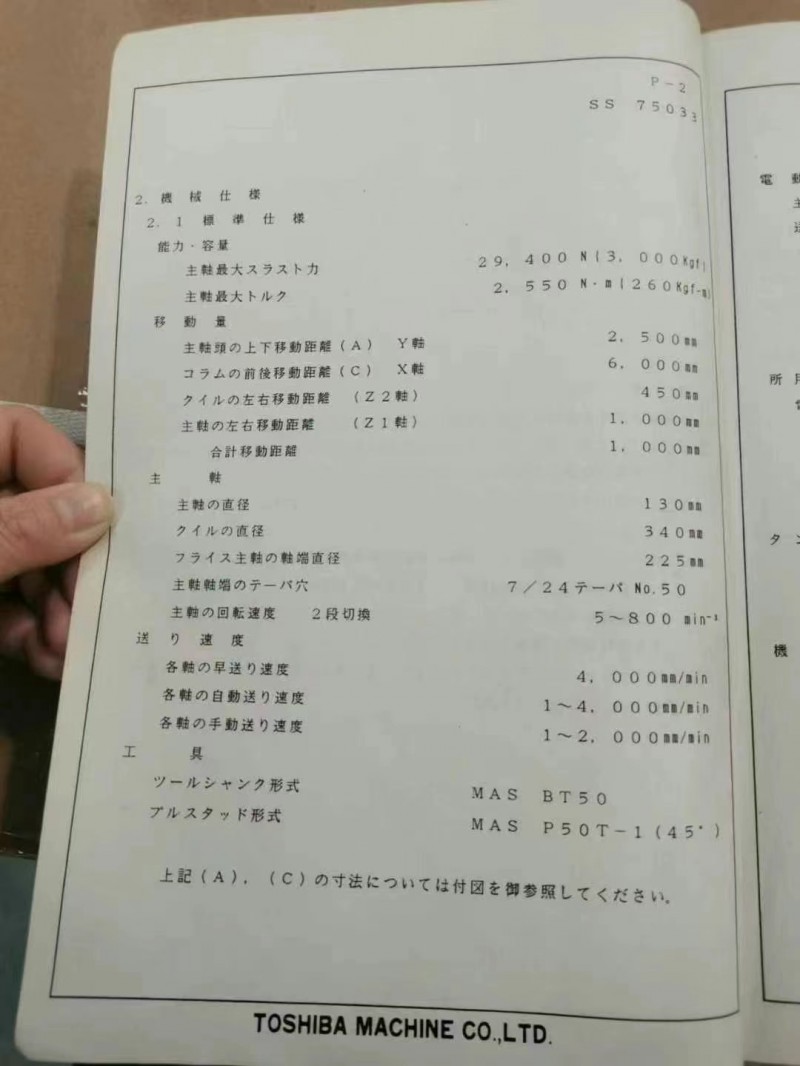 P-2
SS 75033
2. 機械仕様
2.1 標準仕様
能力・容量
主軸最大スラスト力 29,400 N(3,000Kgf)
主軸最大トルク 2,550 N・m(260Kgf-m)
移動量
主軸頭の上下移動距離(A) Y軸 2,500mm
コラムの前後移動距離(C) X軸 6,000mm
クイルの左右移動距離 (Z2軸) 450mm
主軸の左右移動距離 (Z1軸) 1,000mm
合計移動距離 1,000mm
主軸
主軸の直径 130mm
クイルの直径 340mm
フライス主軸の軸端直径 225mm
主軸軸端のテーパ穴 7/24テーパ No.50
主軸の回転速度 2段切換 5~800 min⁻¹
送り速度
各軸の早送り速度 4,000mm/min
各軸の自動送り速度 1~4,000mm/min
各軸の手動送り速度 1~2,000mm/min
工具
ツールシャンク形式 MAS BT50
プルスタッド形式 MAS P50T-1(45°)
上記(A),(C)の寸法については付図を御参照してください。
TOSHIBA MACHINE CO.,LTD.
電動
主
所用
タン
機